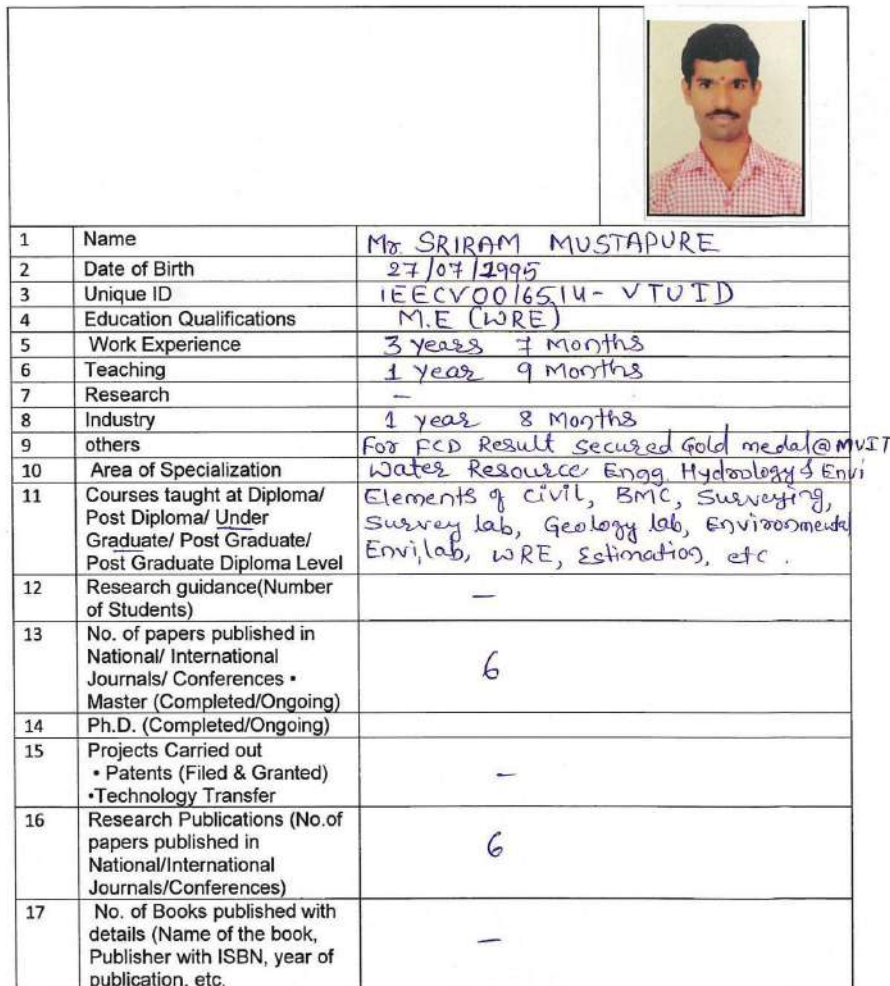 1 Name Mr. SRIRAM MUSTAPURE
2 Date of Birth 27/07/1995
3 Unique ID IEECV0016514- VTU ID
4 Education Qualifications M.E (WRE)
5 Work Experience 3 years 7 Months
6 Teaching 1 year 9 Months
7 Research -
8 Industry 1 year 8 Months
9 others For FCD Result secured Gold medal@MVIT
10 Area of Specialization Water Resource Engg. Hydrology & Envi
11 Courses taught at Diploma/ Elements of civil, BMC, Surveying,
Post Diploma/ Under Survey lab, Geology lab, Environmental
Graduate/ Post Graduate/ Envi,lab, WRE, Estimation, etc.
Post Graduate Diploma Level
12 Research guidance(Number -
of Students)
13 No. of papers published in
National/ International
Journals/ Conferences • 6
Master (Completed/Ongoing)
14 Ph.D. (Completed/Ongoing)
15 Projects Carried out
• Patents (Filed & Granted) -
•Technology Transfer
16 Research Publications (No.of
papers published in 6
National/International
Journals/Conferences)
17 No. of Books published with
details (Name of the book, -
Publisher with ISBN, year of
publication, etc.